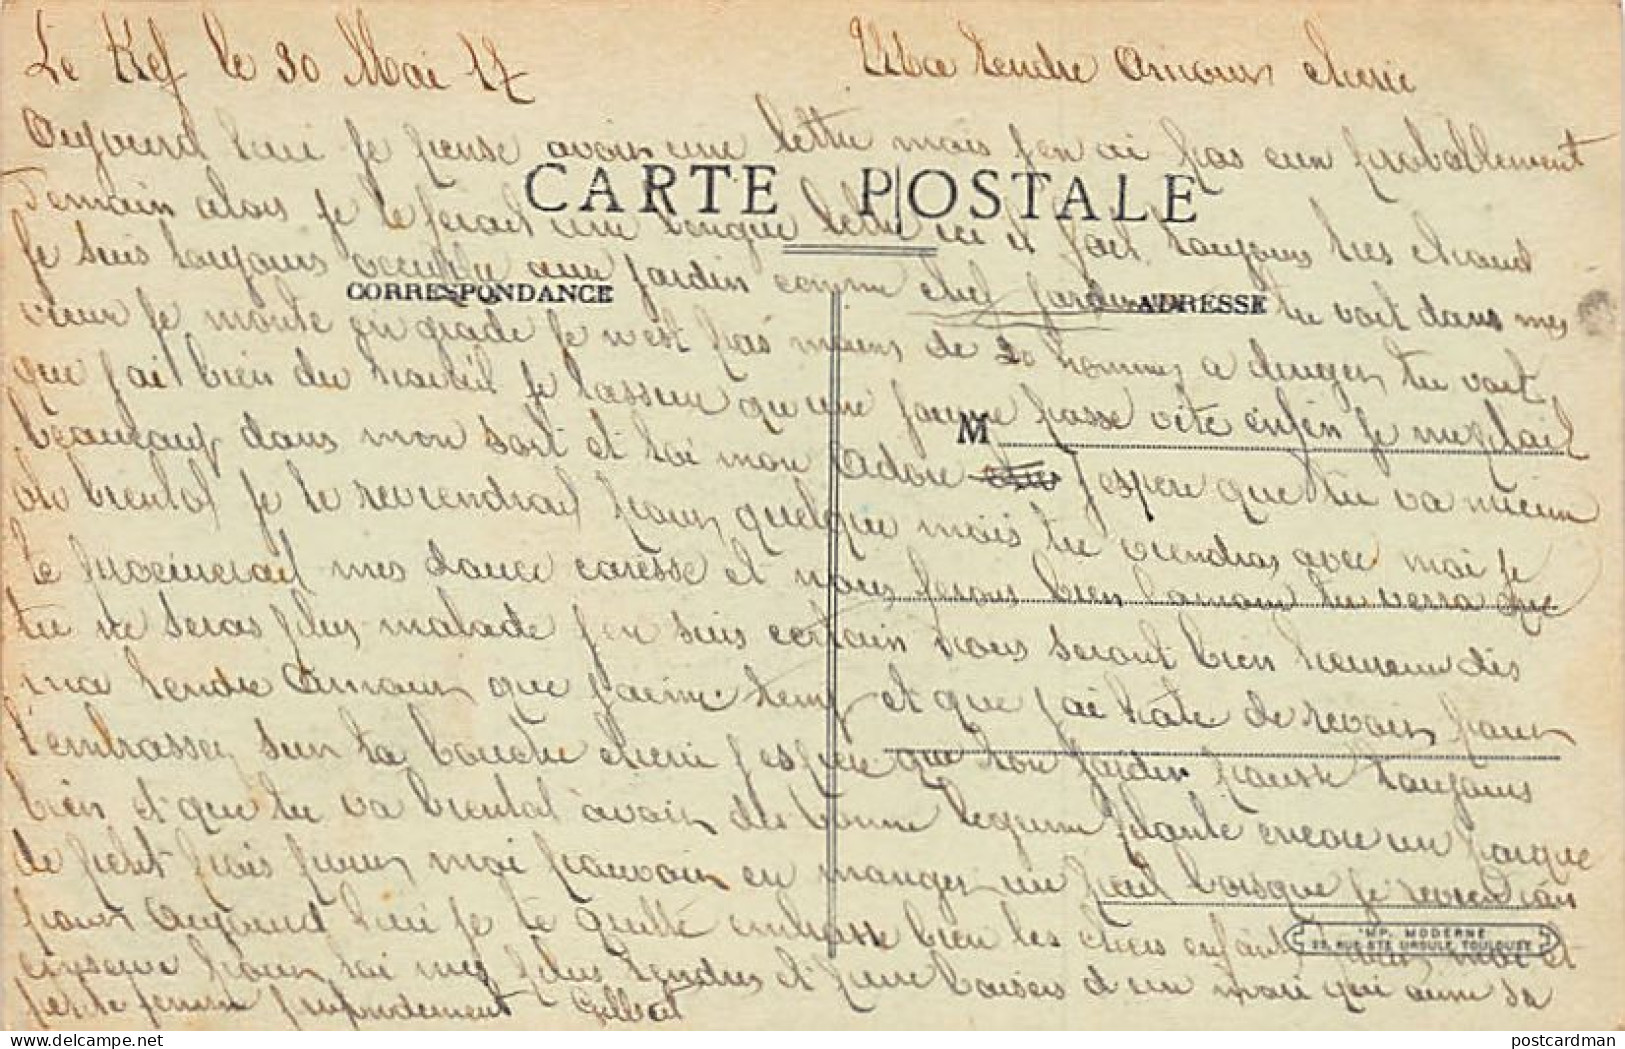 Le Kef le 30 Mai 17 Ma tendre Amour cherie
Aujourd hui je pense avoir une lettre mais j en ai pas eu probablement
Demain alors je te ferait une longue lettre ici il fait toujours tres chaud
CARTE POSTALE
je suis toujours occupée aux jardin comme chef jardinier tu voit dans mes
CORRESPONDANCE
ADRESSE
vieux je monte en grade je n'est pas moins de 20 hommes a diriger tu voit
que j'ai bien du travail je t'assure qu une journe passe vite enfin je me plait
M
beaucoup dans mon sort et toi mon Adore j espere que tu va mieux
oh bientot je te reviendrait pour quelque mois tu viendras avec moi je
te procurerait mes douce caresse et nous ferons bien l amour tu verra que
tu ne seras plus malade j en suis certain nous seront bien heureux dis
ma tendre Amour que j'aime temp et que j'ai hate de revoir pour
t'embrasser sur ta bouche cheri j espere que ton jardin pousse toujours
bien et que tu va bientot avoir des bonne legume plante encore un
de petit pois pour moi pouvoir en manger un peu lorsque je reviendrai
pour Aujourd hui je te quitte embrasse bien les chers enfants pour moi et
IMP. MODERNE
22, RUE STE URSULE, TOULOUSE
conserve pour toi mes plus tendres et pure baisers d un mari qui aime sa
petite femme profondement Gilbert
postcardman